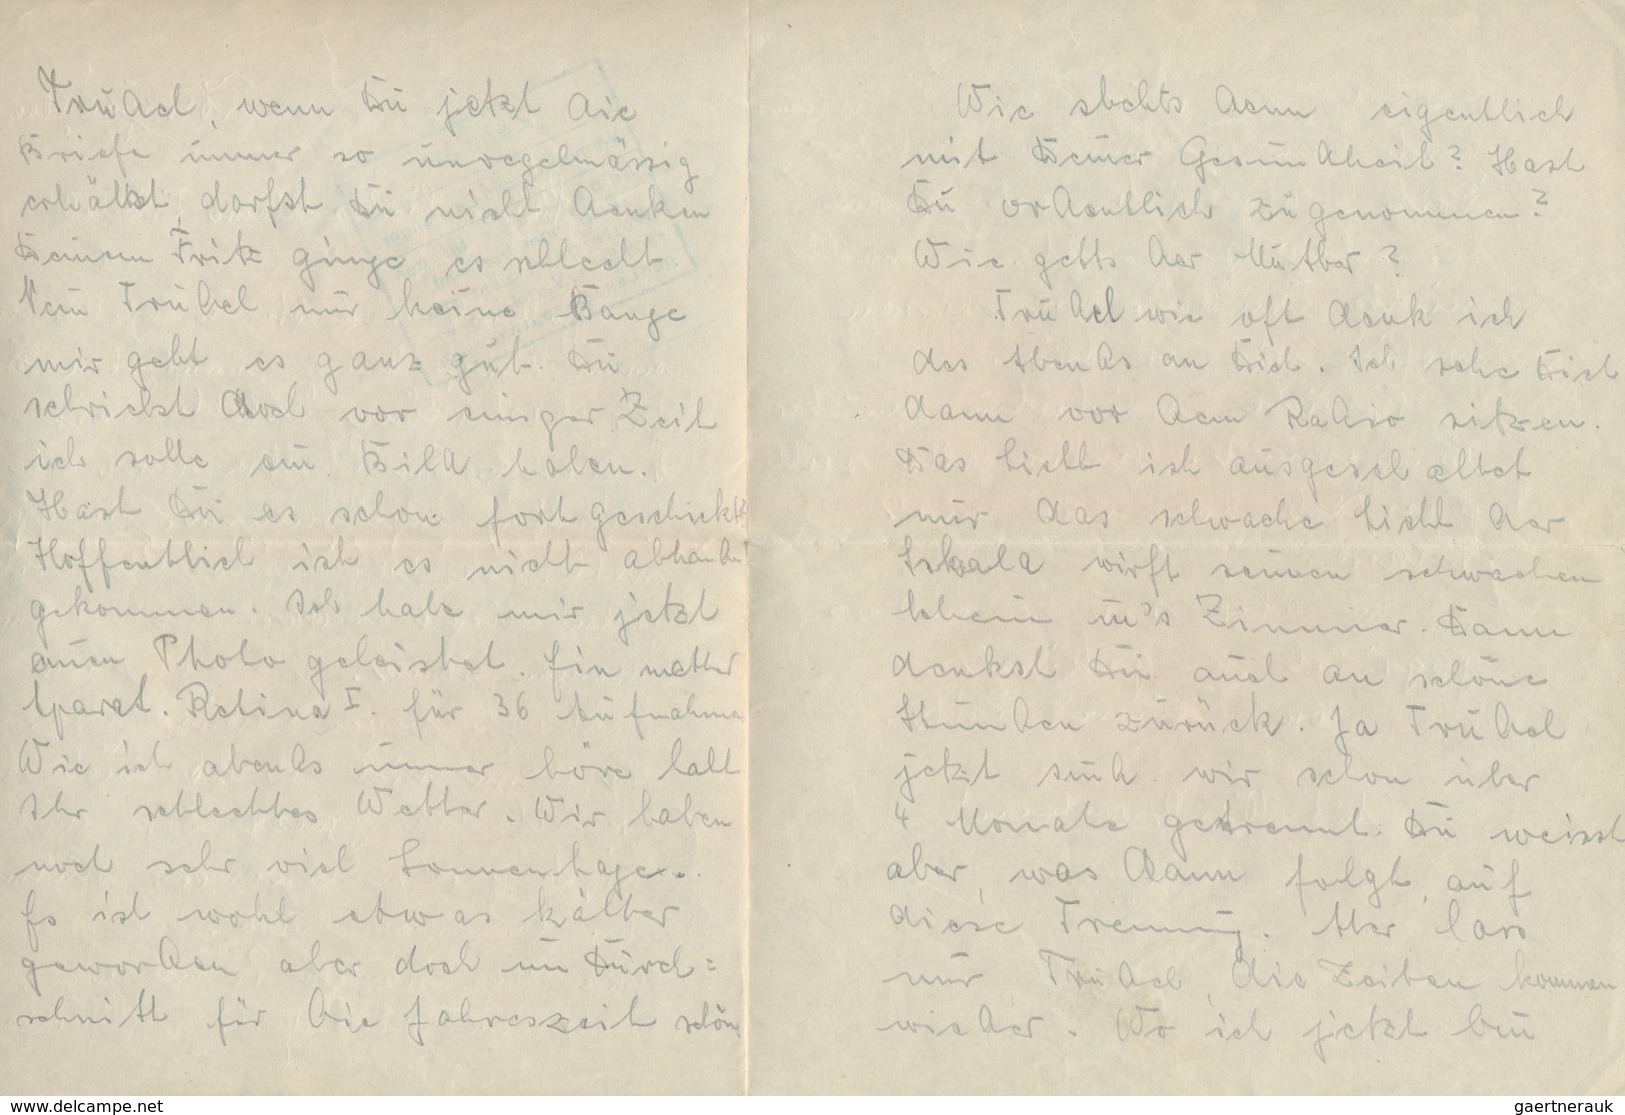 Trudel, wenn Du jetzt die
Briefe immer so unregelmässig
erhältst, darfst Du nicht denken
Deinem Fritz ginge es schlecht.
Nein Trudel nur keine Bange
mir geht es ganz gut. Du
schriebst doch vor einiger Zeit
ich solle ein Bild holen.
Hast Du es schon fortgeschickt?
Hoffentlich ist es nicht abhanden
gekommen. Ich habe mir jetzt
einen Photo geleistet. Ein netter
Aparat. Retina I. für 36 Aufnahmen
Wie ich abends immer höre habt
Ihr schlechtes Wetter. Wir haben
noch sehr viel Sonnentage.
Es ist wohl etwas kälter
geworden aber doch im Durch=
schnitt für die Jahreszeit schön
Wie stehts denn eigentlich
mit Deiner Gesundheit? Hast
Du ordentlich zugenommen?
Wie gehts der Mutter?
Trudel wie oft denk ich
des Abends an Dich. Ich sehe Dich
dann vor dem Radio sitzen.
Das Licht ist ausgeschaltet
nur das schwache Licht der
Skala wirft seinen schwachen
Schein in's Zimmer. Dann
denkst Du auch an schöne
Stunden zurück. Ja Trudel
jetzt sind wir schon über
4 Monate getrennt. Du weisst
aber, was dann folgt, auf
diese Trennung. Aber lass
nur Trudel, die Zeiten kommen
wieder. Wo ich jetzt bin
www.delcampe.net
gaertnerauk